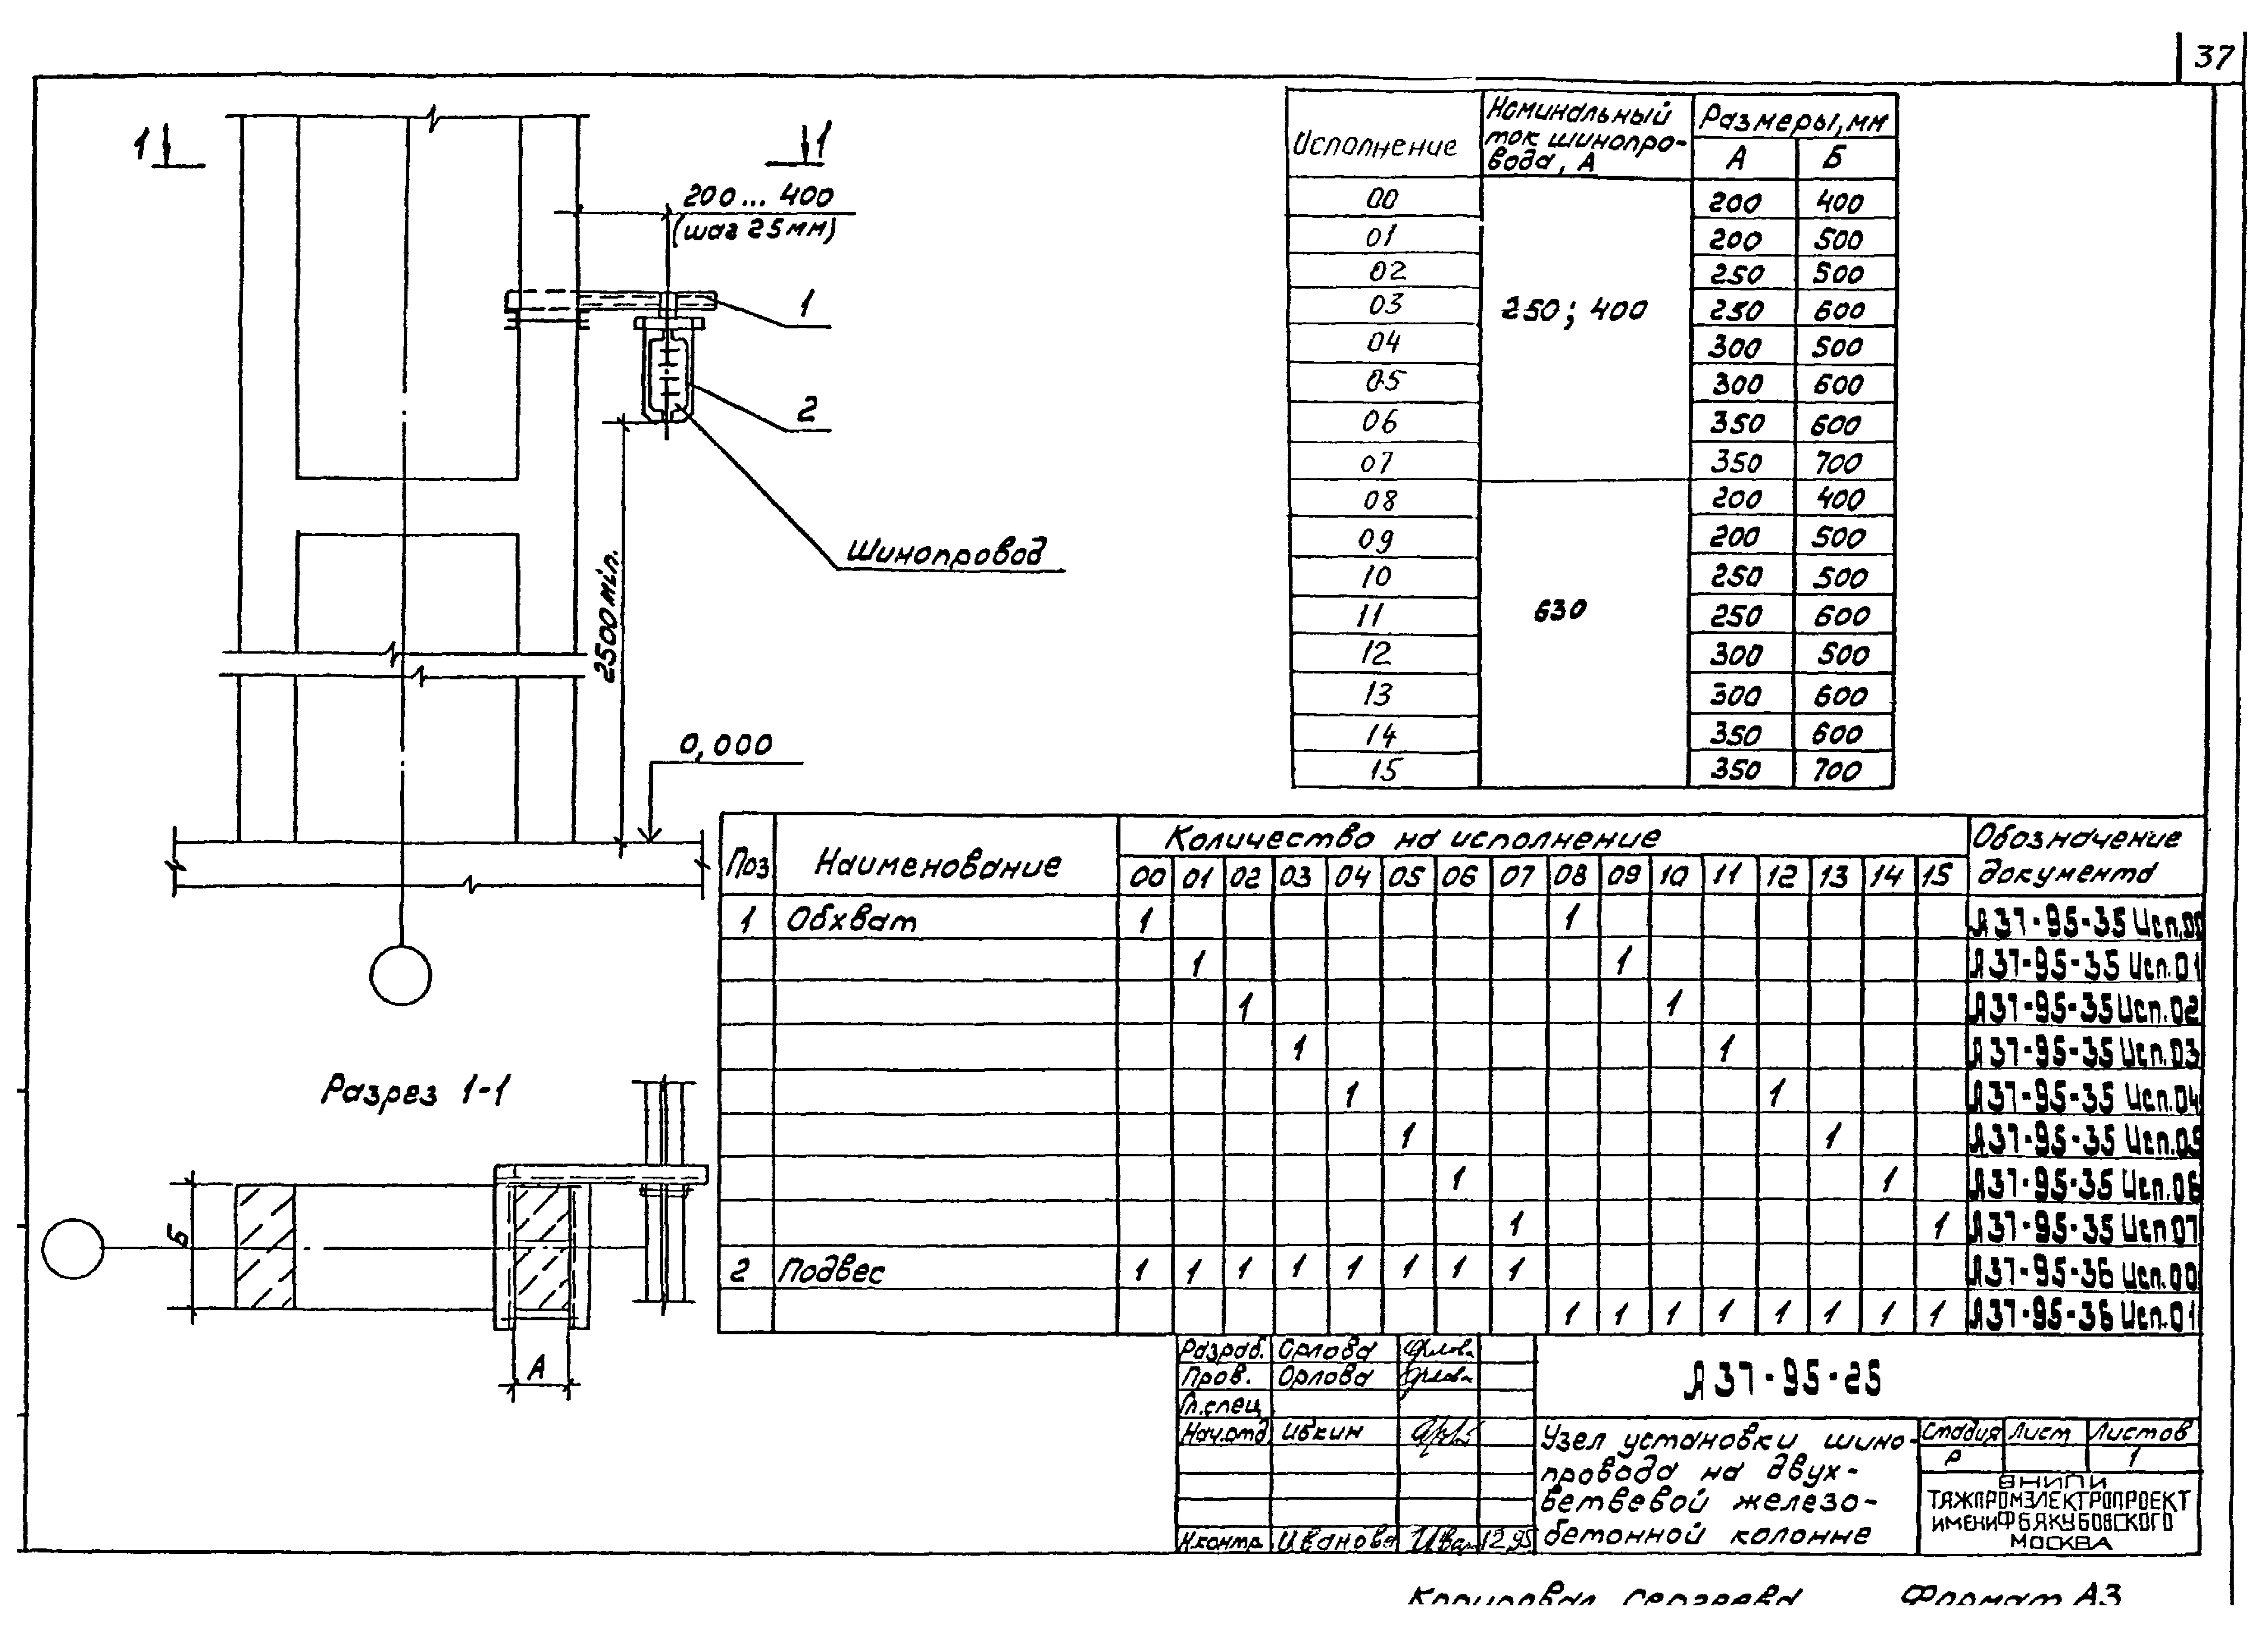 37
1 1
200... 400
(шаг 25мм)
1
2
Шинопровод
2500 min.
0,000
Разрез 1-1
Б
А
Исполнение Номинальный ток шинопро- вода, А Размеры, мм
А Б
00 250; 400 200 400
01 200 500
02 250 500
03 250 600
04 300 500
05 300 600
06 350 600
07 350 700
08 630 200 400
09 200 500
10 250 500
11 250 600
12 300 500
13 300 600
14 350 600
15 350 700
Поз Наименование Количество на исполнение Обозначение документа
00 01 02 03 04 05 06 07 08 09 10 11 12 13 14 15
1 Обхват 1 1 А37-95-35 Исп.00
1 1 А37-95-35 Исп.01
1 1 А37-95-35 Исп.02
1 1 А37-95-35 Исп.03
1 1 А37-95-35 Исп.04
1 1 А37-95-35 Исп.05
1 1 А37-95-35 Исп.06
1 1 А37-95-35 Исп 07
2 Подвес 1 1 1 1 1 1 1 1 А37-95-36 Исп.00
1 1 1 1 1 1 1 1 А37-95-36 Исп.01
Разраб. Орлова Орлова
Пров. Орлова Орлова
Гл.спец
Нач.отд. Ивкин
Н.контр. Иванова Иван 12.95
А37-95-25
Узел установки шино-
провода на двух-
ветвевой железо-
бетонной колонне
Стадия Лист Листов
Р 1
ВНИПИ
ТЯЖПРОМЭЛЕКТРОПРОЕКТ
ИМЕНИ Ф.Б.ЯКУБОВСКОГО
МОСКВА
Копировал Сергеева Формат А3